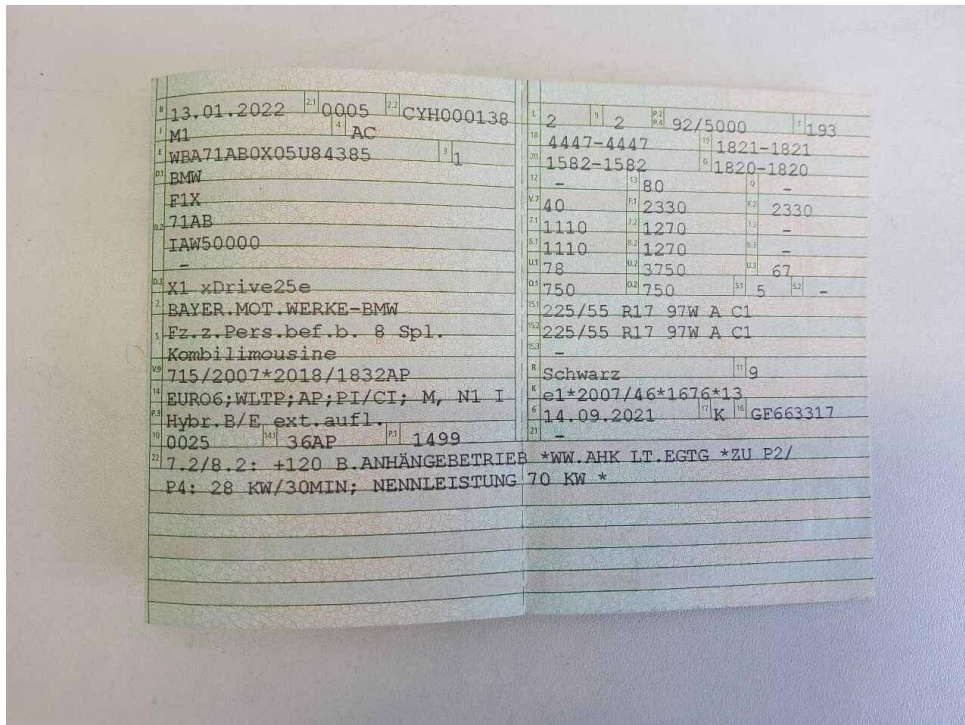 B 13.01.2022 2.1 0005 2.2 CYH000138
J M1 4 AC
E WBA71AB0X05U84385 3 1
D.1 BMW
F1X
D.2 71AB
IAW50000
-
D.3 X1 xDrive25e
2 BAYER.MOT.WERKE-BMW
5 Fz.z.Pers.bef.b. 8 Spl.
Kombilimousine
V.9 715/2007*2018/1832AP
14 EURO6;WLTP;AP;PI/CI; M, N1 I
P.3 Hybr.B/E ext.aufl.
10 0025 14.1 36AP P.1 1499
L 2 9 2 P.2 P.4 92/5000 T 193
18 4447-4447 19 1821-1821
20 1582-1582 G 1820-1820
12 - 13 80 Q -
V.7 40 F.1 2330 F.2 2330
7.1 1110 7.2 1270 7.3 -
8.1 1110 8.2 1270 8.3 -
U.1 78 U.2 3750 U.3 67
O.1 750 O.2 750 S.1 5 S.2 -
15.1 225/55 R17 97W A C1
15.2 225/55 R17 97W A C1
15.3 -
R Schwarz 11 9
K e1*2007/46*1676*13
6 14.09.2021 17 K 16 GF663317
21 -
22 7.2/8.2: +120 B.ANHÄNGEBETRIEB *WW.AHK LT.EGTG *ZU P2/
P4: 28 KW/30MIN; NENNLEISTUNG 70 KW *